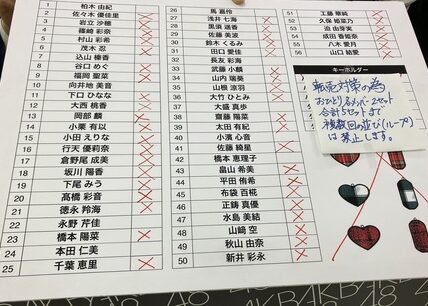 1 柏木 由紀
2 佐々木 優佳里
3 岩立 沙穂
4 篠崎 彩奈
5 村山 彩希
6 茂木 忍
7 込山 榛香
8 谷口 めぐ
9 福岡 聖菜
10 向井地 美音
11 下口 ひなな
12 大西 桃香
13 岡部 麟
14 小栗 有以
15 小田 えりな
16 行天 優莉奈
17 倉野尾 成美
18 坂川 陽香
19 下尾 みう
20 髙橋 彩音
21 徳永 羚海
22 永野 芹佳
23 橋本 陽菜
24 本田 仁美
25 千葉 恵里
26 馬 嘉伶
27 浅井 七海
28 黒須 遥香
29 佐藤 美波
30 鈴木 くるみ
31 田口 愛佳
32 長友 彩海
33 武藤 小麟
34 山内 瑞葵
35 山根 涼羽
36 大竹 ひとみ
37 大盛 真歩
38 齋藤 陽菜
39 太田 有紀
40 小濱 心音
41 佐藤 綺星
42 橋本 恵理子
43 畠山 希美
44 平田 侑希
45 布袋 百椛
46 正鋳 真優
47 水島 美結
48 山﨑 空
49 秋山 由奈
50 新井 彩永
51 工藤 華純
52 久保 姫菜乃
53 迫 由芽実
54 成田 香姫奈
55 八木 愛月
56 山口 結愛
キーホルダー
転売対策の為
おひとり各メンバー2セット
合計5セットまで
複数回の並び(ループ)
は禁止します。
AKB48